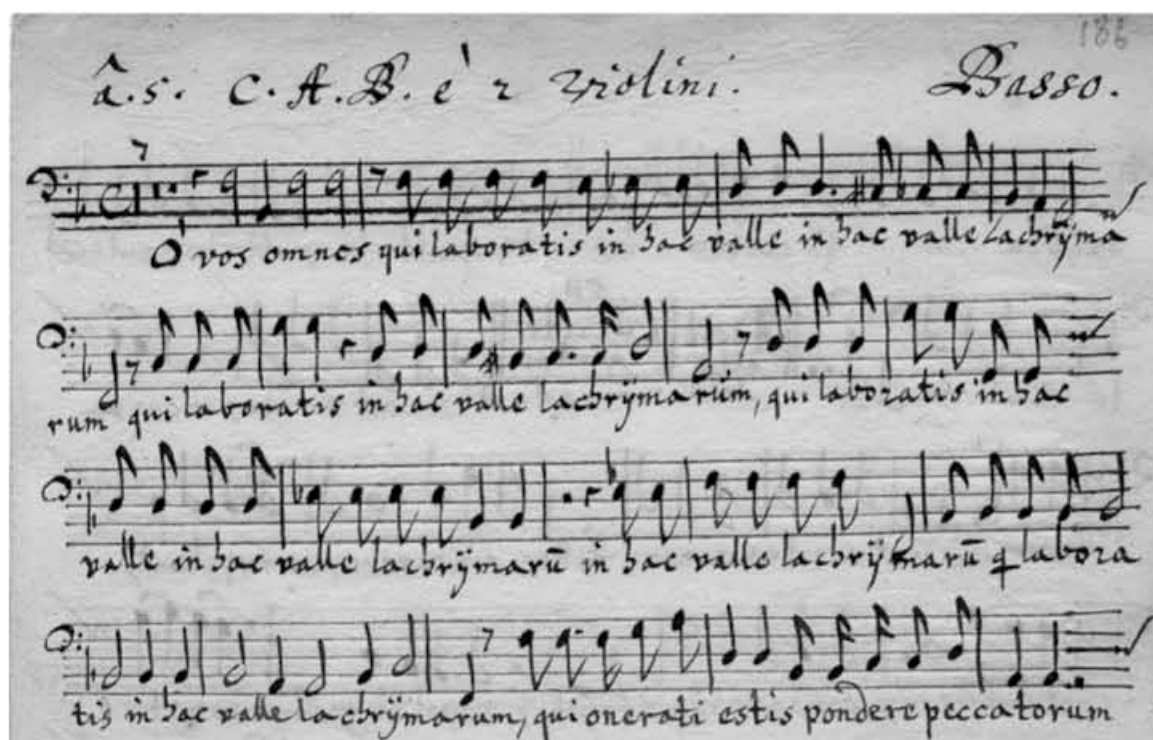 186
â.5. C. A. B. è 2 Violini. Basso.
7
O vos omnes qui laboratis in hac valle in hac valle lachrÿma
rum qui laboratis in hac valle lachrÿmarum, qui laboratis in hac
valle in hac valle lachrÿmarū in hac valle lachrÿmarū ꝗ labora
tis in hac valle lachrÿmarum, qui onerati estis pondere peccatorum